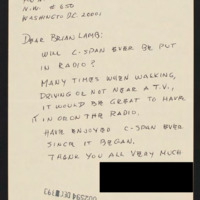 N.W. # 650
WASHINGTON DC. 20001
DEAR BRIAN LAMB:
WILL C-SPAN EVER BE PUT
IN RADIO?
MANY TIMES WHEN WALKING,
DRIVING OR NOT NEAR A T.V.,
IT WOULD BE GREAT TO HAVE
IT IN OR ON THE RADIO.
HAVE ENJOYED C-SPAN EVER
SINCE IT BEGAN.
THANK YOU ALL VERY MUCH